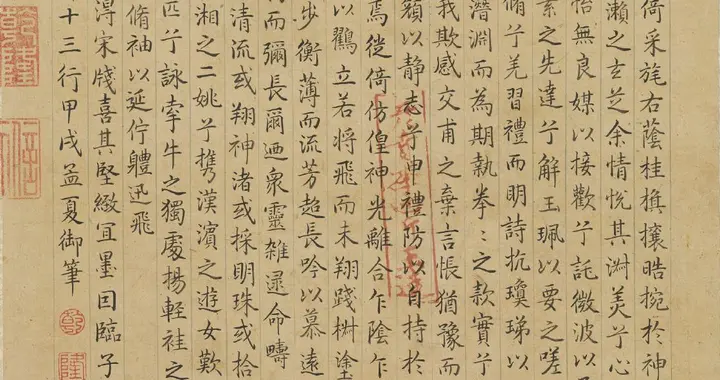 倚采旄右蔭桂旗攘皓捥於神
瀨之玄芝余情悅其淑美兮心
怡無良媒以接歡兮託微波以
素之先達兮解玉珮以要之嗟
脩兮羌習禮而明詩抗瓊珶以
潛淵而為期執拳〻之款實兮
我欺感交甫之棄言悵猶豫而
顏以靜志兮申禮防以自持於
焉徙倚仿偟神光離合乍陰乍
以鸖立若將飛而未翔踐椒塗
步衡薄而流芳超長吟以慕遠
而彌長爾迺衆靈雜遝命疇
清流或翔神渚或採明珠或拾
湘之二姚兮攜漢濱之遊女歎
匹兮詠牽牛之獨處揚輕袿之
脩袖以延佇軆迅飛
淂宋牋喜其堅緻宜墨因臨子
十三行甲戌孟夏御筆